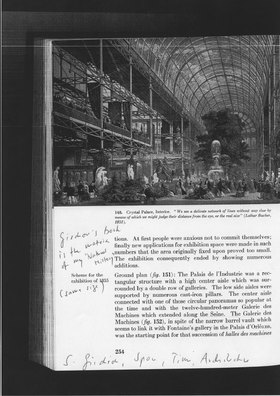 148. Crystal Palace, Interior. "We see a delicate network of lines without any clue by
means of which we might judge their distance from the eye, or the real size" (Lothar Bucher,
1851).
Giedion's book
is the
of my
tions. At first people were anxious not to commit themselves;
finally new applications for exhibition space were made in such
numbers that the area originally fixed upon proved too small.
The exhibition consequently ended by showing numerous
additions.
Scheme for the
exhibition of 1855
Ground plan (fig. 151): The Palais de l'Industrie was a rec-
tangular structure with a high center aisle which was sur-
rounded by a double row of galleries. The low side aisles were
supported by numerous cast-iron pillars. The center aisle
connected with one of those circular panoramas so popular at
the time and with the twelve-hundred-meter Galerie des
Machines which extended along the Seine. The Galerie des
Machines (fig. 152), in spite of the narrow barrel vault which
seems to link it with Fontaine's gallery in the Palais d'Orléans,
was the starting point for that succession of halles des machines
254
S. Giedion, Space, Time, Architecture